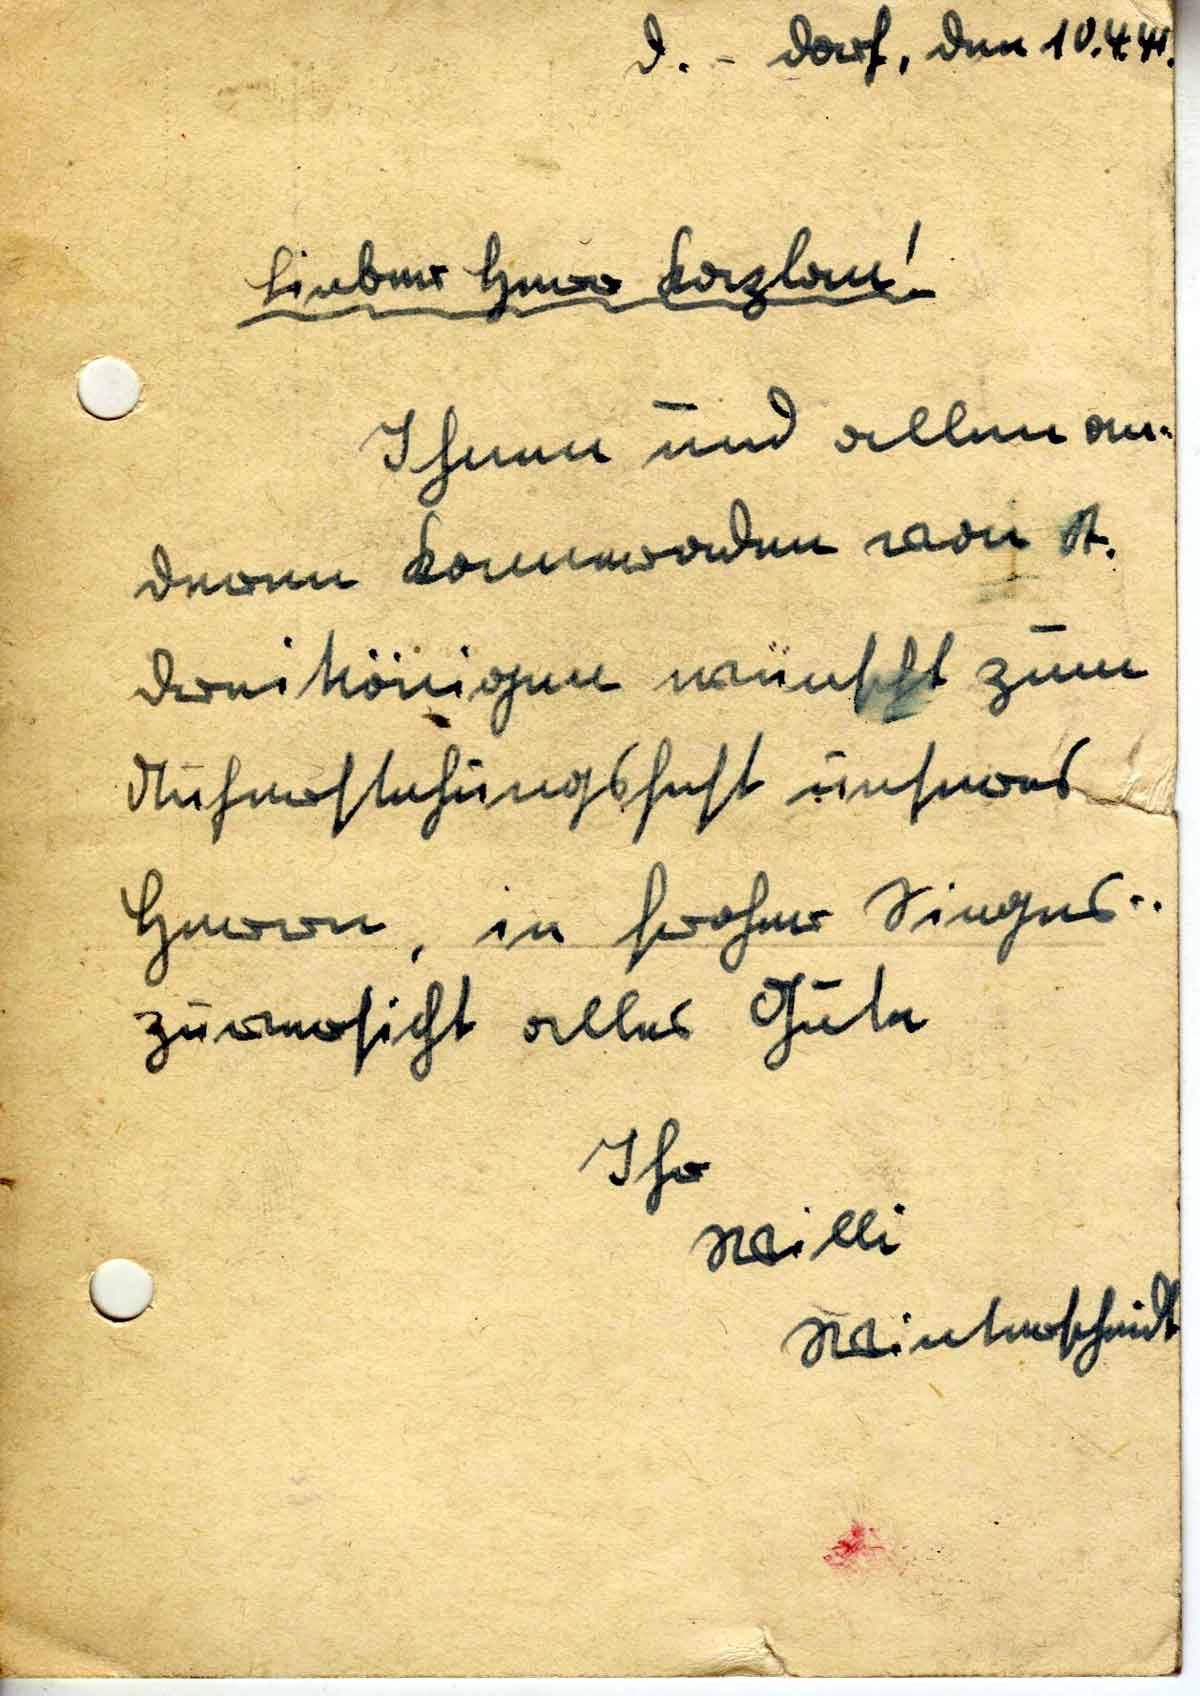 D. - dorf, den 10.4.41.
Lieber Herr Kaplan!
Ihnen und allen an-
deren Kameraden von St.
Dreikönigen wünscht zum
Auferstehungsfest unseres
Herrn, in froher Sieges-
zuversicht alles Gute
Ihr
Willi
Winterscheidt